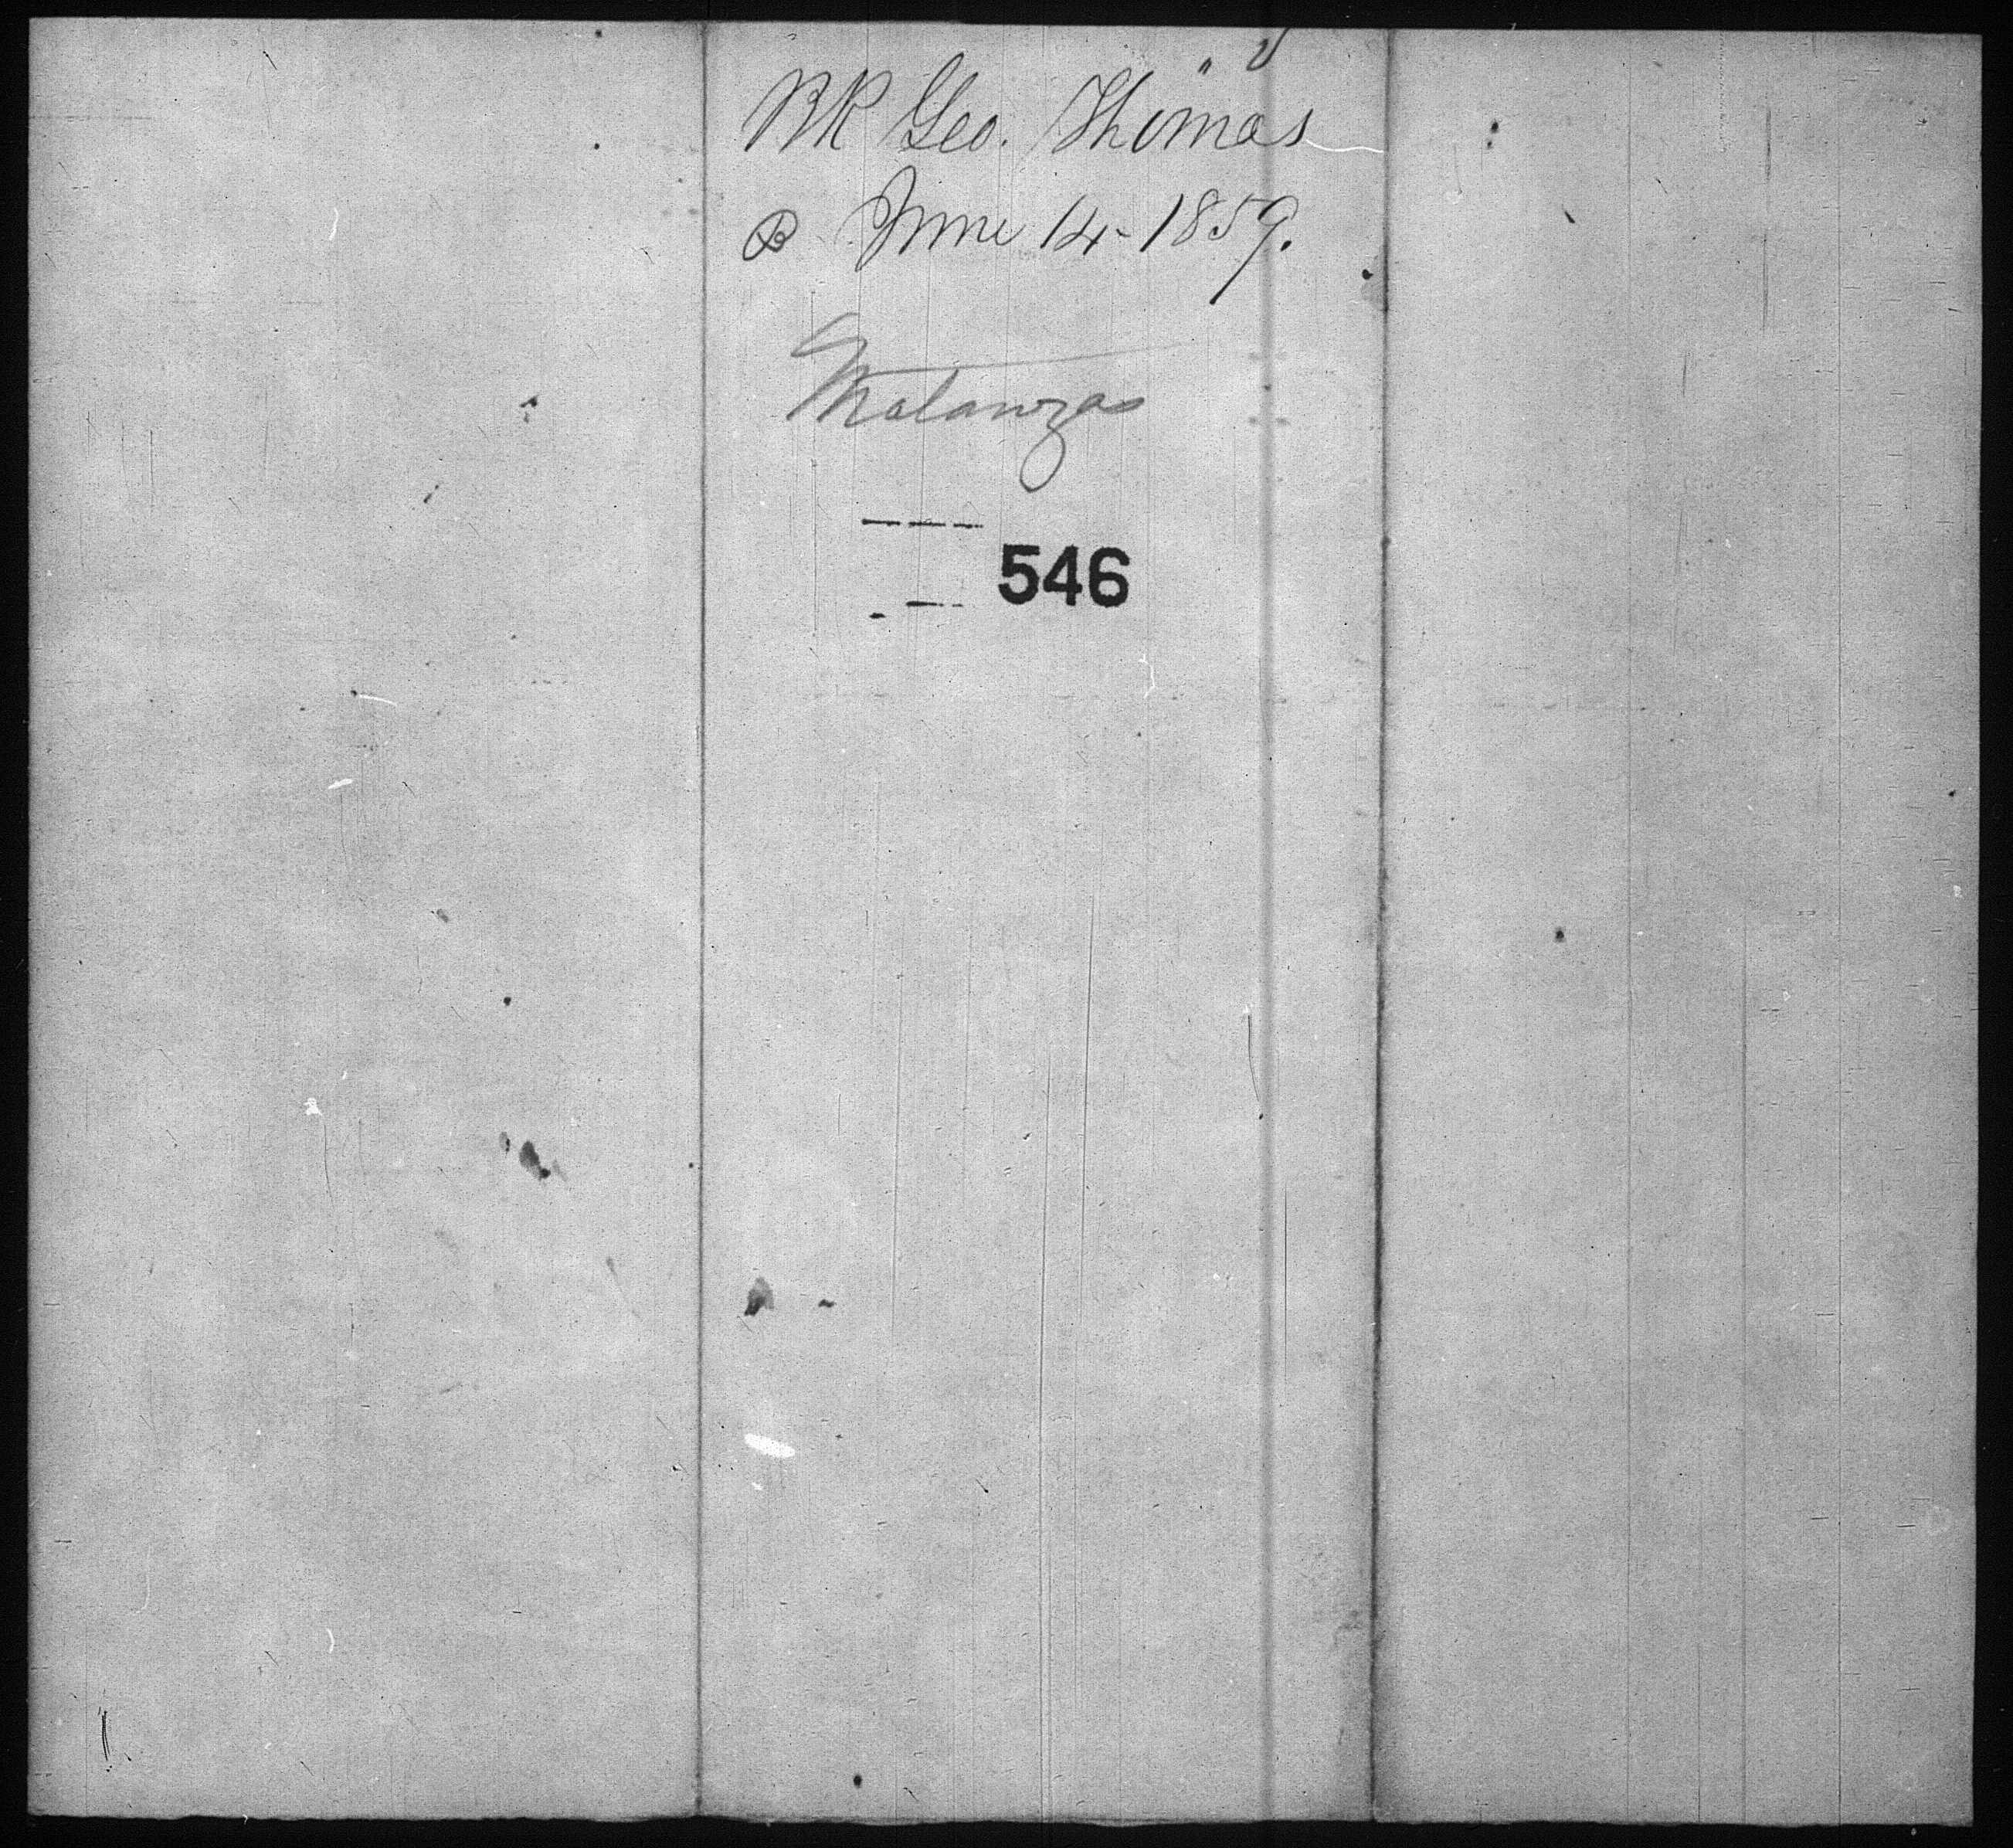 BK Geo. Thomas
B June 14-1859.
Matanzas
546